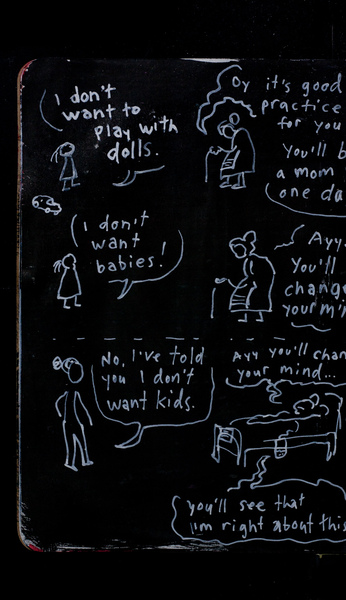 I don't
want to
play with
dolls.
Oy it's good
practice
for you
You'll b
a mom
one da
I don't
want
babies!
Ayy.
You'll
chang
your m
No, I've told
you I don't
want kids.
Ayy you'll chan
your mind...
you'll see that
I'm right about this